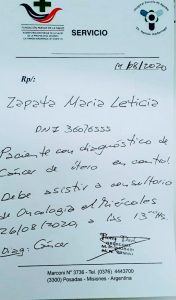 FUNDACION PARQUE DE LA SALUD
SERVICIO
14/08/2020
Rp/:
Zapata Maria Leticia
DNI 36076555
Paciente con diagnóstico de
Cáncer de útero en control
Debe asistir a consultorio
de Oncología el Miércoles
26/08/2020, a las 13 hs
Diag: Cáncer
Marconi N° 3736 - Tel. (0376) 4443700
(3300) Posadas - Misiones - Argentina